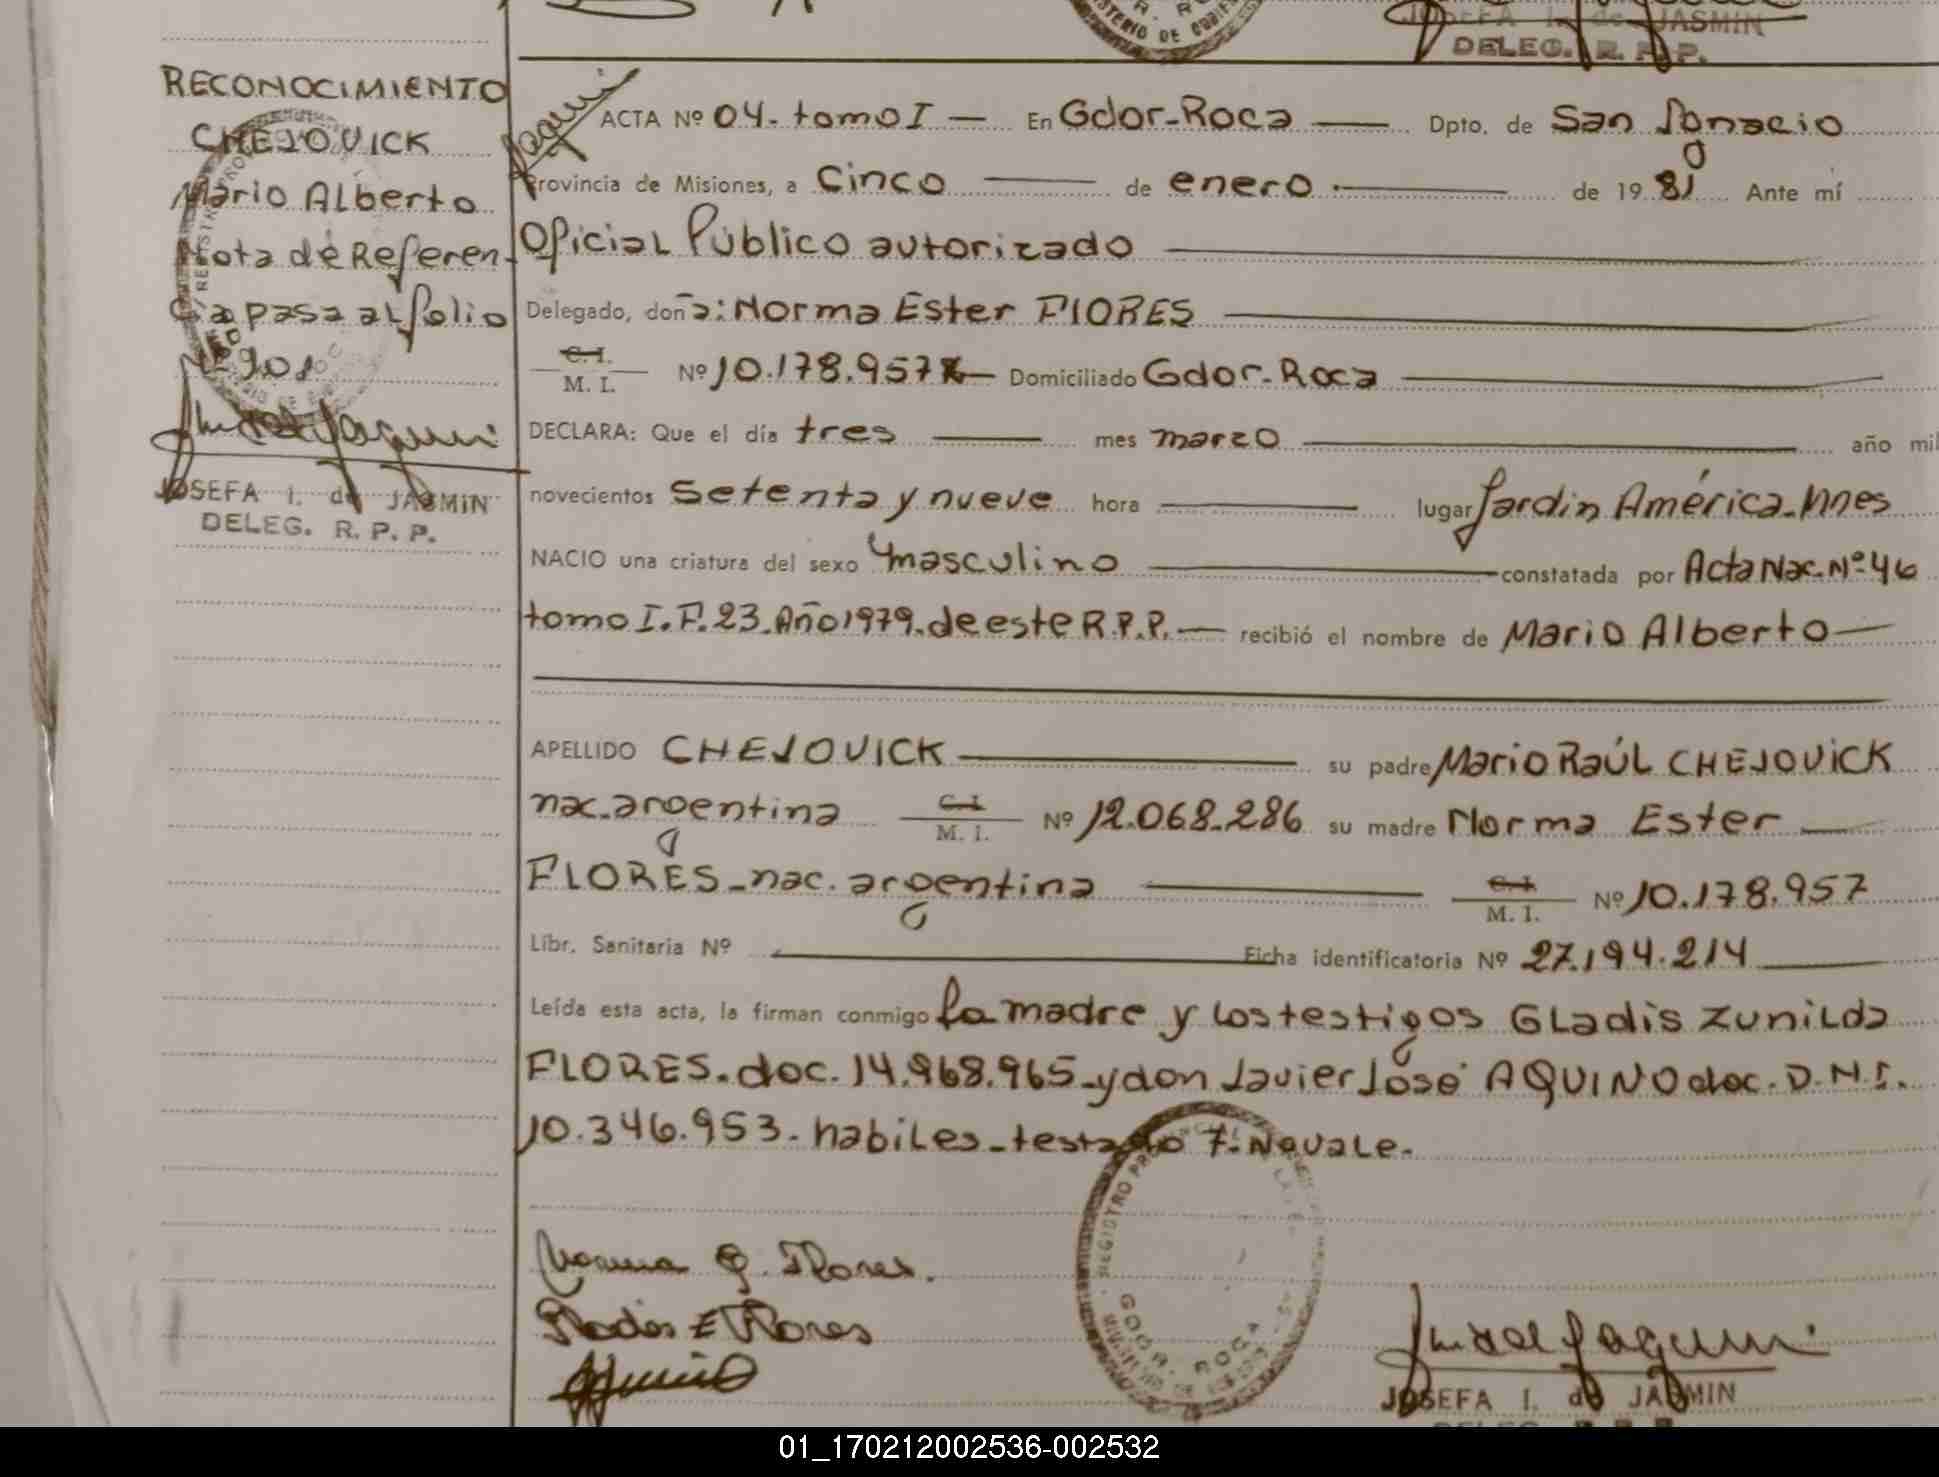 JOSEFA I. de JASMIN
DELEG. R. P. P.
RECONOCIMIENTO
CHEJOVICK
Mario Alberto
Nota de Referen-
cia pasa al folio
Nº 901
JOSEFA I. de JASMIN
DELEG. R. P. P.
ACTA Nº 04. tomo I — En Gdor-Roca — Dpto. de San Ignacio
Provincia de Misiones, a Cinco — de enero — de 19 81 Ante mí
Oficial Público autorizado —
Delegado, don̄a: Norma Ester FlORES —
C. I. M. I. Nº 10.178.957 — Domiciliado Gdor-Roca —
DECLARA: Que el día tres — mes marzo — año mil
novecientos Setenta y nueve hora — lugar Jardin América-Mnes
NACIO una criatura del sexo masculino — constatada por Acta Nac. Nº 46
tomo I. F. 23. Año 1979. de este R.P.P. — recibió el nombre de Mario Alberto —
APELLIDO CHEJOVICK — su padre Mario Raúl CHEJOVICK
nac. argentina C. I. M. I. Nº 12.068.286 su madre Norma Ester —
FLORES - nac. argentina — C. I. M. I. Nº 10.178.957
Libr. Sanitaria Nº — Ficha identificatoria Nº 27.194.214 —
Leída esta acta, la firman conmigo la madre y los testigos Gladis Zunilda
FLORES. doc. 14.968.965 - y don Javier José AQUINO doc. D.N.I.
10.346.953 - habiles - testado 7. No vale.
Norma E. Flores.
GDOR. ROCA
JOSEFA I. de JASMIN
01_170212002536-002532